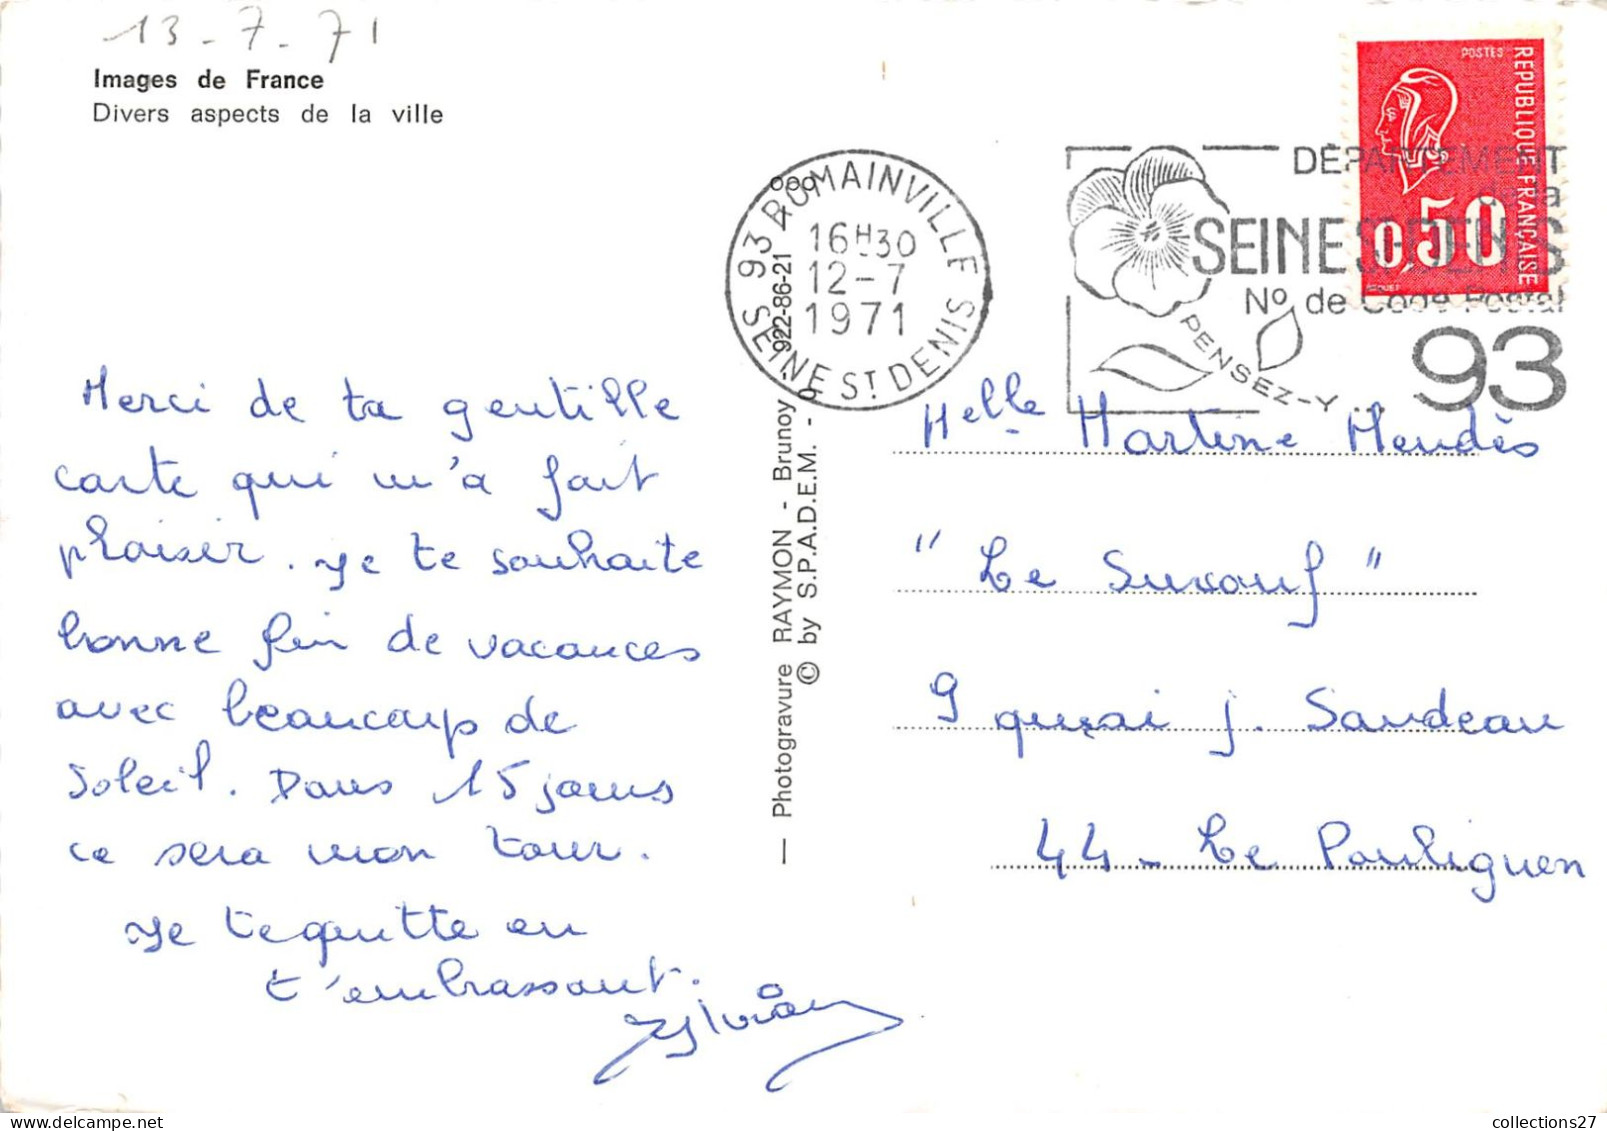 13-7-71
Images de France
Divers aspects de la ville
Merci de ta gentille
carte qui m'a fait
plaisir. Je te souhaite
bonne fin de vacances
avec beaucoup de
soleil. Dans 15 jours
ce sera mon tour.
Je te quitte en
t'embrassant.
— Photogravure RAYMON - Brunoy - 922-86-21 -
© by S.P.A.D.E.M.
93 ROMAINVILLE
16H30
12-7
1971
SEINE ST DENIS
PENSEZ-Y...
DÉPARTEMENT
de la
SEINE ST DENIS
No de Code Postal
93
POSTES
REPUBLIQUE FRANÇAISE
0,50
Melle Martine Mendès
"Le Surcouf"
9 quai J. Sandeau
44 - Le Pouliguen
collections27